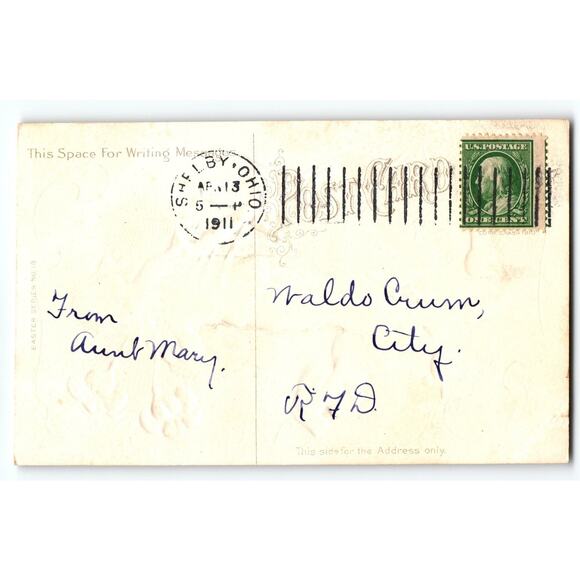 This Space For Writing Messages
SHELBY, OHIO
APR 13
5 — P
1911
POST CARD
U.S. POSTAGE
ONE CENT
EASTER SERIES NO.
From
Aunt Mary.
Waldo Crum,
City.
R F D.
This side for the Address only.